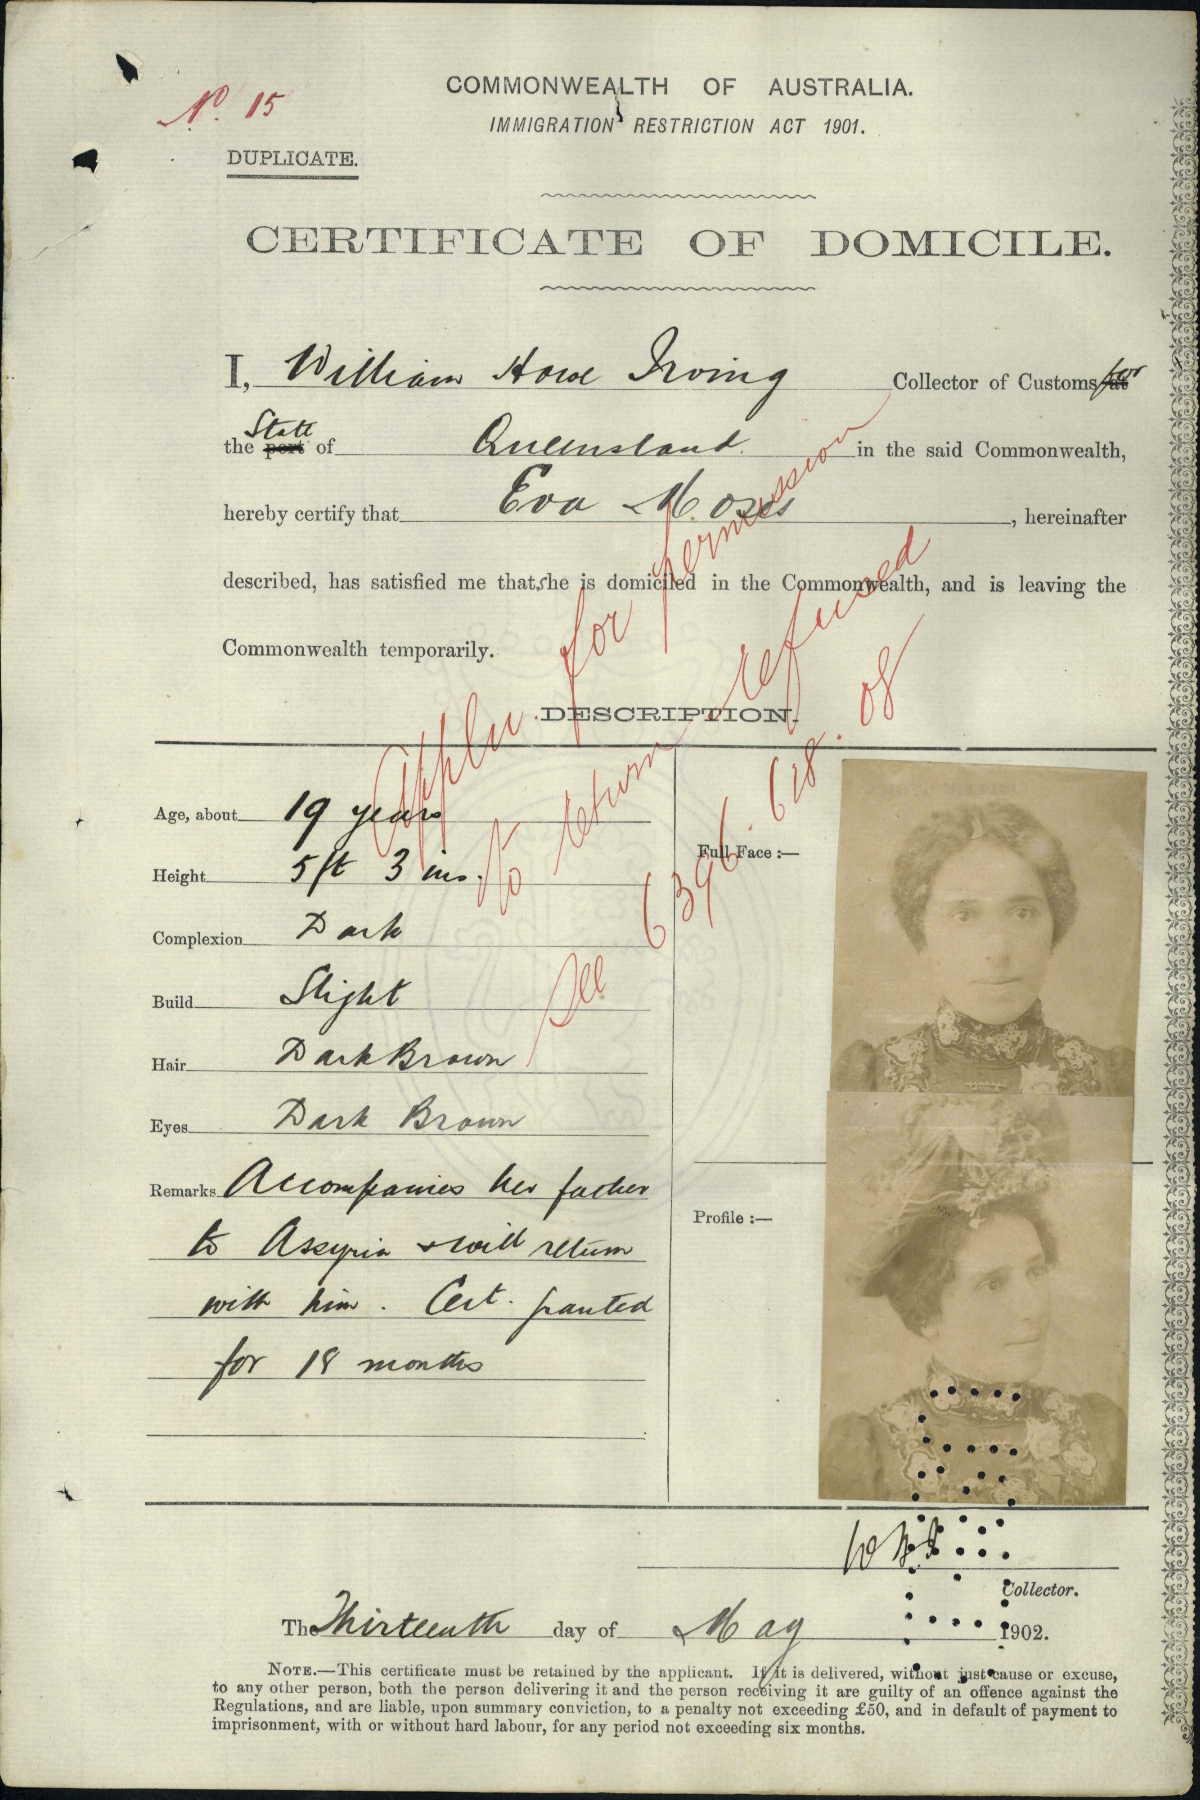 No. 15
COMMONWEALTH OF AUSTRALIA.
IMMIGRATION RESTRICTION ACT 1901.
DUPLICATE.
CERTIFICATE OF DOMICILE.
I, William Howe Irving Collector of Customs at for
the port State of Queensland. in the said Commonwealth,
hereby certify that Eva Moses, hereinafter
described, has satisfied me that she is domiciled in the Commonwealth, and is leaving the
Commonwealth temporarily.
Appln. for permission
to return refused
See 6396. 6/8.08
DESCRIPTION.
Age, about 19 years
Height 5 ft 3 ins.
Complexion Dark
Build Slight
Hair Dark Brown
Eyes Dark Brown
Remarks Accompanies her father
to Assyria & will return
with him. Cert. granted
for 18 months
Full Face :—
Profile :—
WHI
Collector.
Th Thirteenth day of May 1902.
NOTE.—This certificate must be retained by the applicant. If it is delivered, without just cause or excuse,
to any other person, both the person delivering it and the person receiving it are guilty of an offence against the
Regulations, and are liable, upon summary conviction, to a penalty not exceeding £50, and in default of payment to
imprisonment, with or without hard labour, for any period not exceeding six months.